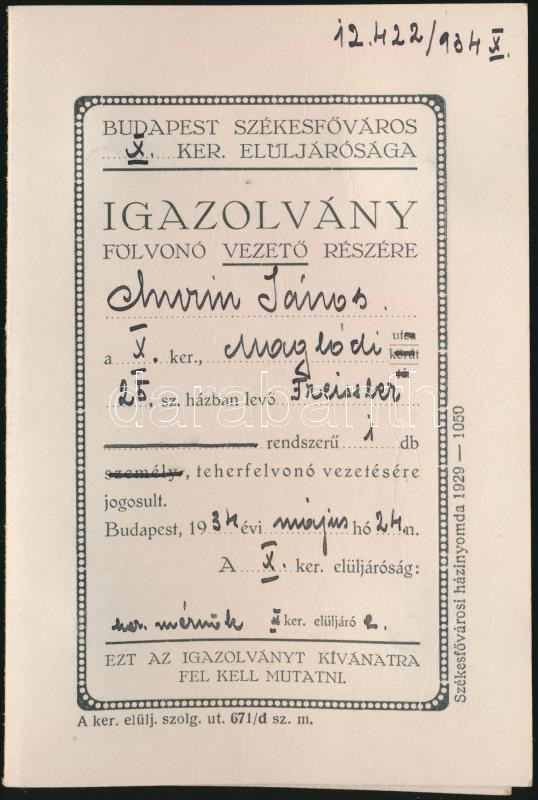 12.422/934 X.
BUDAPEST SZÉKESFŐVÁROS
X. KER. ELÜLJÁRÓSÁGA
IGAZOLVÁNY
FÖLVONÓ VEZETŐ RÉSZÉRE
János.
a X. ker., Maglódi utca
körút
tér
25. sz. házban levő Freissler
rendszerű 1 db
személy-, teherfelvonó vezetésére
jogosult.
Budapest, 1934 évi május hó 24.n.
A X. ker. elüljáróság:
ker. mérnök X ker. elüljáró
EZT AZ IGAZOLVÁNYT KÍVÁNATRA
FEL KELL MUTATNI.
A ker. elülj. szolg. ut. 671/d sz. m.
Székesfővárosi házinyomda 1929 — 1050
darabanth